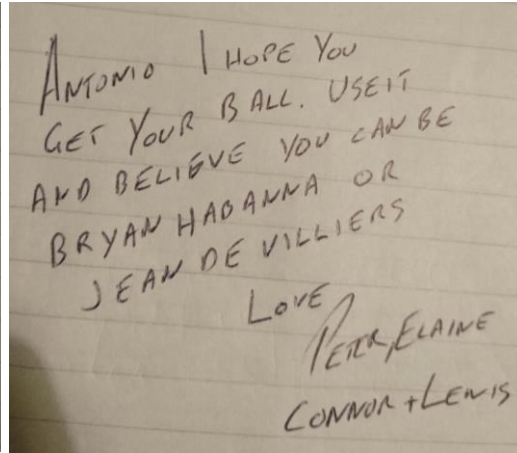 ANTONIO I HOPE YOU
GET YOUR BALL. USE IT
AND BELIEVE YOU CAN BE
BRYAN HABANNA OR
JEAN DE VILLIERS
LOVE
PETER, ELAINE
CONNOR + LEWIS